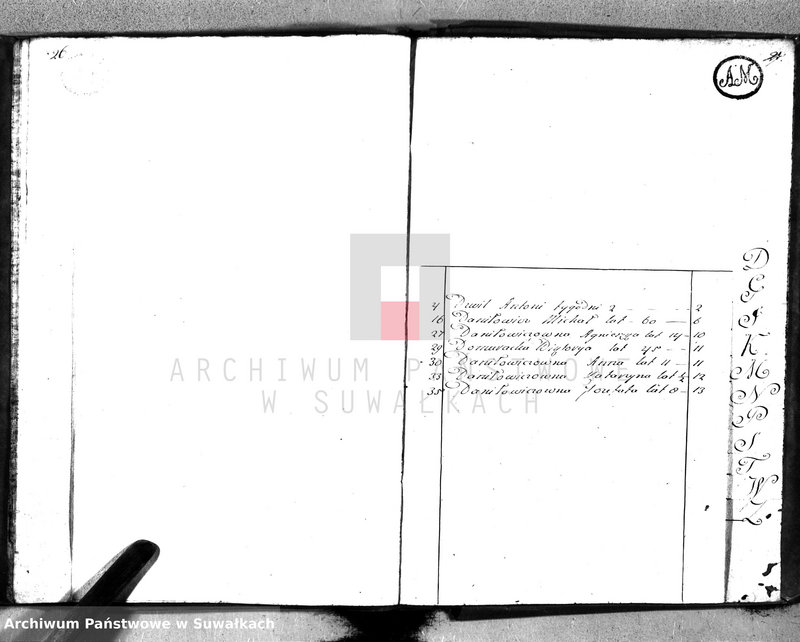 26
AM
4 Druil Antoni tygodni 2 - - - - 2
16 Daniłowicz Michał lat 60 — 6
27 Daniłowiczowna Agnieszka lat 14 - 10
29 Domuracka Wiktorya lat 45 - - 11
30 Daniłowiczowna Anna lat 11 - - 11
33 Daniłowiczowna Kataryna lat - 12
35 Daniłowiczowna Jozefata lat 8 - 13
D
G
J
K
M
N
P
S
T
W
Z
ARCHIWUM PAŃSTWOWE
W SUWAŁKACH
Archiwum Państwowe w Suwałkach